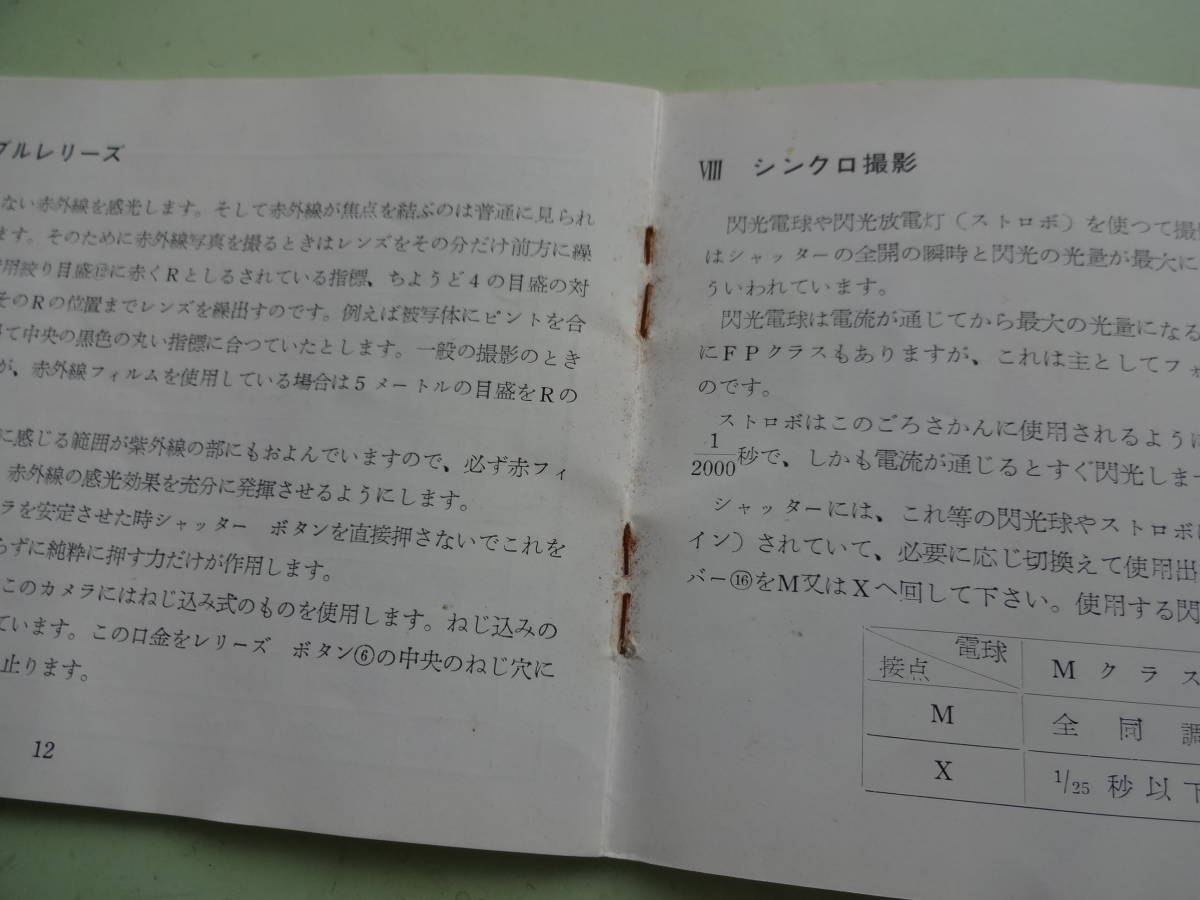 ブルレリーズ
ない赤外線を感光します。そして赤外線が焦点を結ぶのは普通に見られ
ます。そのために赤外線写真を撮るときはレンズをその分だけ前方に繰
用絞り目盛⑫に赤くRとしるされている指標、ちようど4の目盛の対
そのRの位置までレンズを繰出すのです。例えば被写体にピントを合
て中央の黒色の丸い指標に合つていたとします。一般の撮影のとき
が、赤外線フィルムを使用している場合は5メートルの目盛をRの
に感じる範囲が紫外線の部にもおよんでいますので、必ず赤フィ
赤外線の感光効果を充分に発揮させるようにします。
ラを安定させた時シャッター ボタンを直接押さないでこれを
らずに純粋に押す力だけが作用します。
このカメラにはねじ込み式のものを使用します。ねじ込みの
ています。この口金をレリーズ ボタン⑥の中央のねじ穴に
止ります。
12
Ⅷ シンクロ撮影
閃光電球や閃光放電灯（ストロボ）を使つて撮
はシャッターの全開の瞬時と閃光の光量が最大に
ういわれています。
閃光電球は電流が通じてから最大の光量になる
にFPクラスもありますが、これは主としてフォ
のです。
ストロボはこのごろさかんに使用されるように
1/2000秒で、しかも電流が通じるとすぐ閃光しま
シャッターには、これ等の閃光球やストロボ
イン）されていて、必要に応じ切換えて使用出
バー⑯をM又はXへ回して下さい。使用する閃
電球
接点 Mクラス
M 全同調
X 1/25秒以下